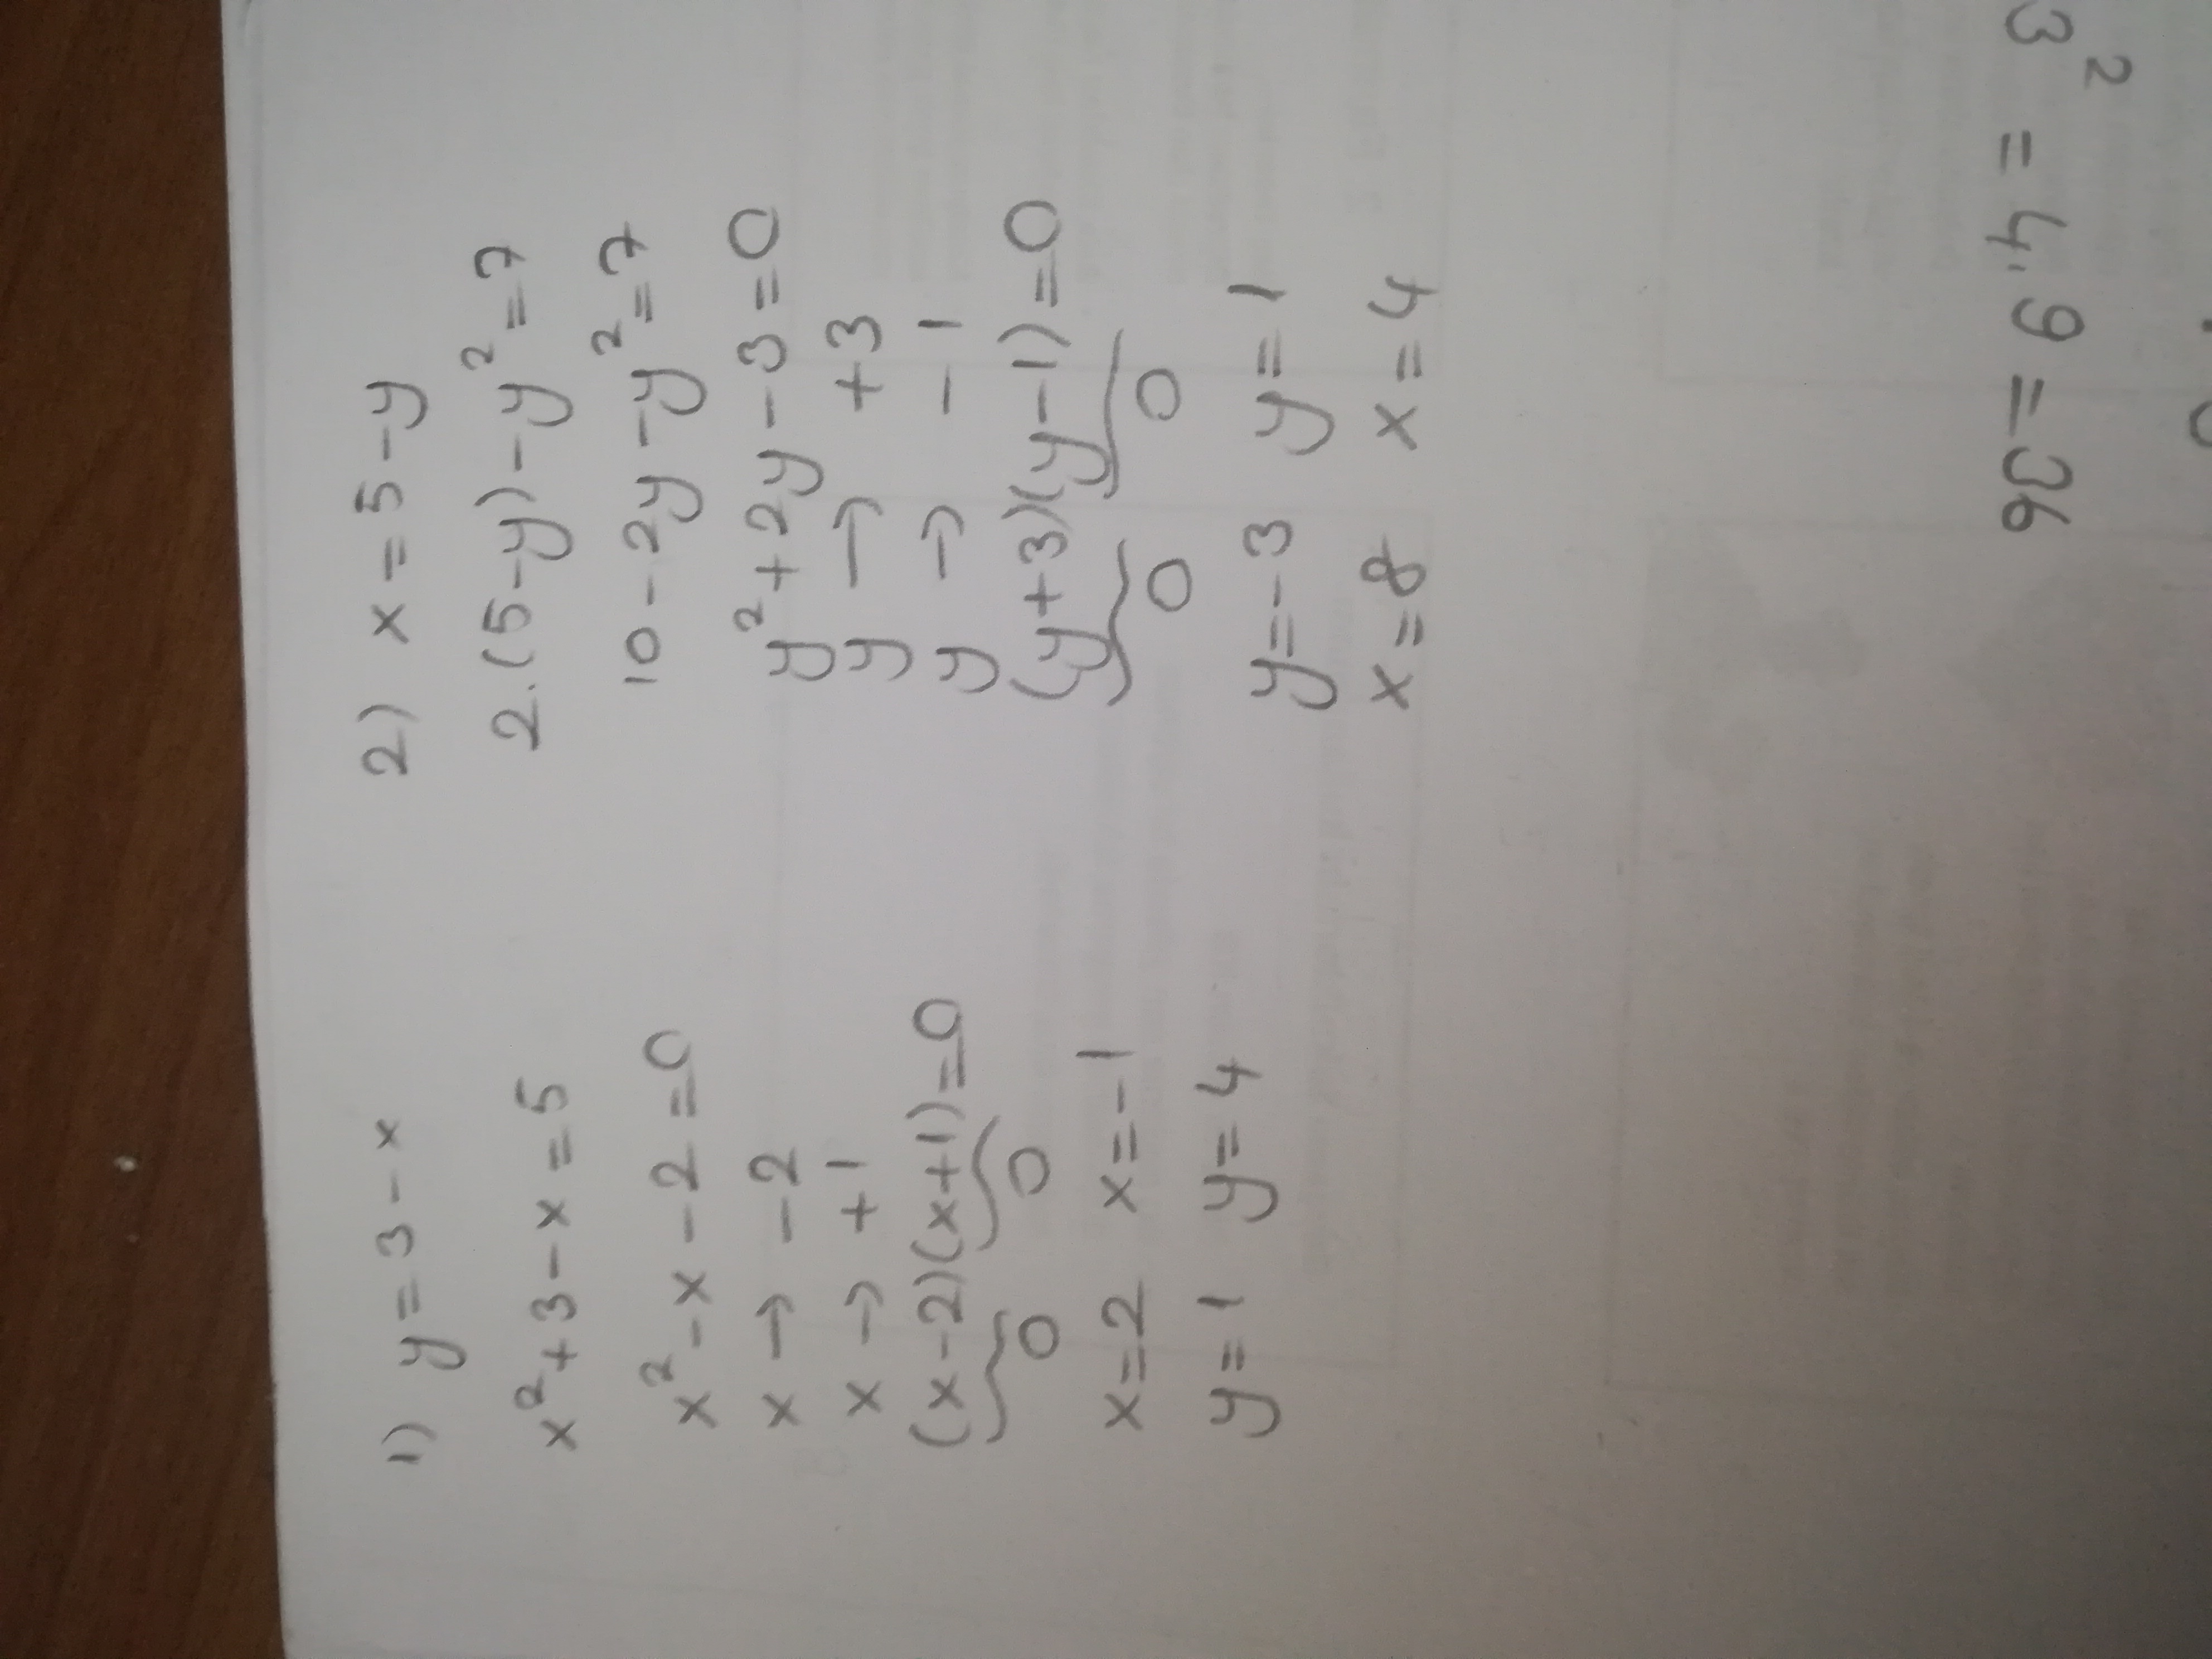 1) y = 3 - x
x² + 3 - x = 5
x² - x - 2 = 0
x → - 2
x → + 1
(x - 2)(x + 1) = 0
0 0
x = 2 x = - 1
y = 1 y = 4
2) x = 5 - y
2.(5 - y) - y² = 7
10 - 2y - y² = 7
y² + 2y - 3 = 0
y → + 3
y → - 1
(y + 3)(y - 1) = 0
0 0
y = - 3 y = 1
x = 8 x = 4
3² = 4.9 = 36